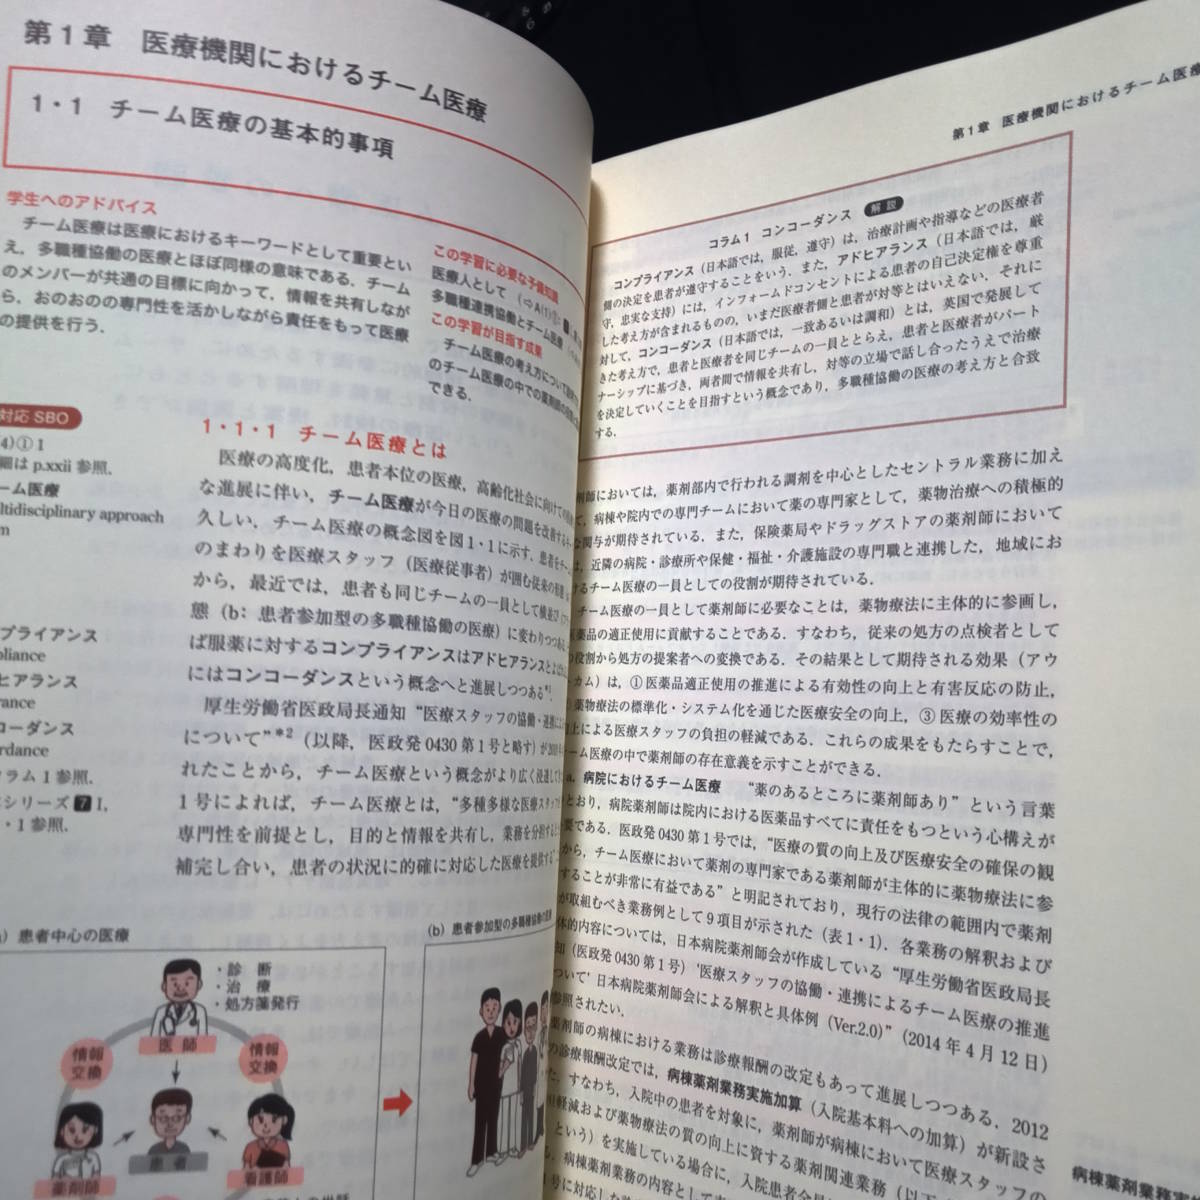 第1章 医療機関におけるチーム医療
1・1 チーム医療の基本的事項
学生へのアドバイス
チーム医療は医療におけるキーワードとして重要とい
え，多職種協働の医療とほぼ同様の意味である．チーム
のメンバーが共通の目標に向かって，情報を共有しなが
ら，おのおのの専門性を活かしながら責任をもって医療
の提供を行う．
この学習に必要な予備知識
医療人として
多職種連携協働とチーム医療
この学習が目指す成果
チーム医療の考え方について説明
のチーム医療の中での薬剤師の
できる．
対応 SBO
4)①1
細は p.xxii 参照．
ーム医療
ltidisciplinary approach
m
プライアンス
pliance
ヒアランス
rance
コーダンス
rdance
ラム1参照．
シリーズ 7 I,
・1 参照．
1・1・1 チーム医療とは
医療の高度化，患者本位の医療，高齢化社会に向けての
な進展に伴い，チーム医療が今日の医療の問題を改善する
久しい．チーム医療の概念図を図1・1に示す．患者を
のまわりを医療スタッフ（医療従事者）が囲む従来の形態
から，最近では，患者も同じチームの一員として横並び
態（b：患者参加型の多職種協働の医療）に変わりつつある
ば服薬に対するコンプライアンスはアドヒアランスと
にはコンコーダンスという概念へと進展しつつある*1．
厚生労働省医政局長通知“医療スタッフの協働・連携に
について”*2（以降，医政発0430第1号と略す）が
れたことから，チーム医療という概念がより広く浸透して
1号によれば，チーム医療とは，“多種多様な医療スタッフが
専門性を前提とし，目的と情報を共有し，業務を分担すると
補完し合い，患者の状況に的確に対応した医療を提供する
a) 患者中心の医療
・診 断
・治 療
・処方薬発行
医師
情報交換
情報交換
患者
薬剤師
看護師
(b) 患者参加型の多職種協働の医療
第1章 医療機関におけるチーム医療
コラム1 コンコーダンス 解説
コンプライアンス（日本語では，服従，遵守）は，治療計画や指導などの医療者
側の決定を患者が遵守することをいう．また，アドヒアランス（日本語では，厳
守，忠実な支持）には，インフォームドコンセントによる患者の自己決定権を尊重
した考え方が含まれるものの，いまだ医療者側と患者が対等とはいえない．それに
対して，コンコーダンス（日本語では，一致あるいは調和）とは，英国で発展して
きた考え方で，患者と医療者を同じチームの一員ととらえ，患者と医療者がパート
ナーシップに基づき，両者間で情報を共有し，対等の立場で話し合ったうえで治療
を決定していくことを目指すという概念であり，多職種協働の医療の考え方と合致
する．
剤師においては，薬剤部内で行われる調剤を中心としたセントラル業務に加え
て，病棟や院内での専門チームにおいて薬の専門家として，薬物治療への積極的
な関与が期待されている．また，保険薬局やドラッグストアの薬剤師において
は，近隣の病院・診療所や保健・福祉・介護施設の専門職と連携した，地域にお
けるチーム医療の一員としての役割が期待されている．
チーム医療の一員として薬剤師に必要なことは，薬物療法に主体的に参画し，
医薬品の適正使用に貢献することである．すなわち，従来の処方の点検者として
の役割から処方の提案者への変換である．その結果として期待される効果（アウ
トカム）は，①医薬品適正使用の推進による有効性の向上と有害反応の防止，
② 薬物療法の標準化・システム化を通じた医療安全の向上，③ 医療の効率性の
向上による医療スタッフの負担の軽減である．これらの成果をもたらすことで，
チーム医療の中で薬剤師の存在意義を示すことができる．
a．病院におけるチーム医療 “薬のあるところに薬剤師あり”という言葉
どおり，病院薬剤師は院内における医薬品すべてに責任をもつという心構えが
必要である．医政発0430第1号では，“医療の質の向上及び医療安全の確保の観
から，チーム医療において薬剤の専門家である薬剤師が主体的に薬物療法に参
することが非常に有益である”と明記されており，現行の法律の範囲内で薬剤
が取組むべき業務例として9項目が示された（表1・1）．各業務の解釈および
体的内容については，日本病院薬剤師会が作成している“厚生労働省医政局長
知（医政発0430第1号）‘医療スタッフの協働・連携によるチーム医療の推進
ついて’日本病院薬剤師会による解釈と具体例（Ver.2.0）”（2014年4月12日）
参照されたい．
薬剤師の病棟における業務は診療報酬の改定もあって進展しつつある．2012
の診療報酬改定では，病棟薬剤業務実施加算（入院基本料への加算）が新設さ
た．すなわち，入院中の患者を対象に，薬剤師が病棟において医療スタッフの
軽減および薬物療法の質の向上に資する薬剤関連業務（以下
という）を実施している場合に，入院患者全員
．病棟薬剤業務の内容として
1号に対応した
病棟薬剤業務実